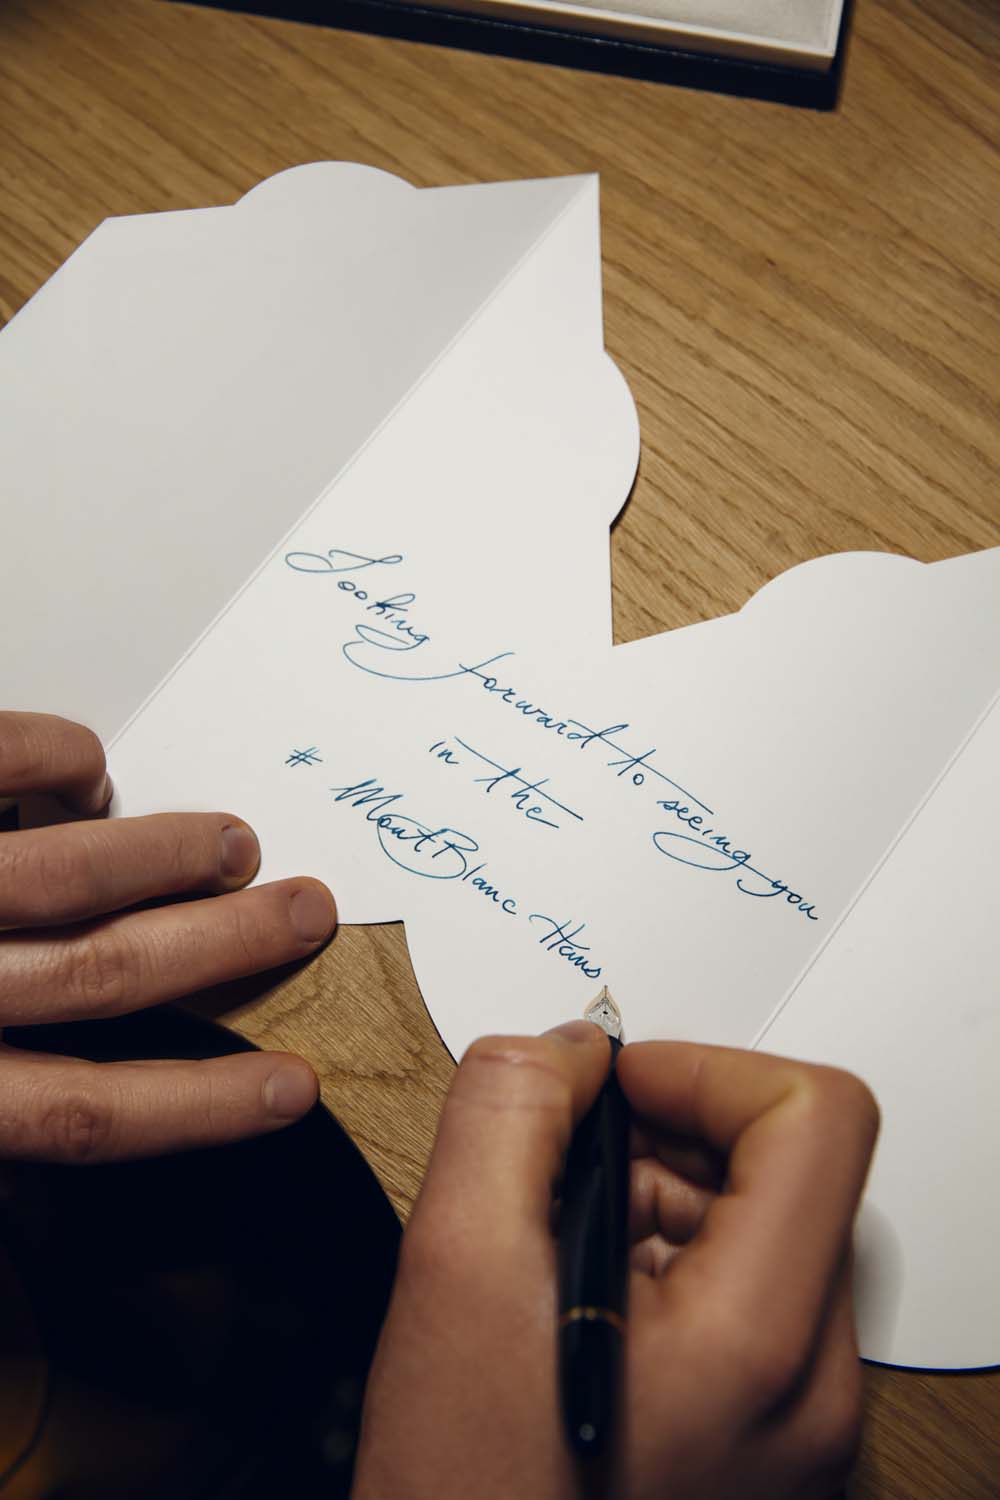 Looking forward to seeing you
in the
# MontBlanc Haus